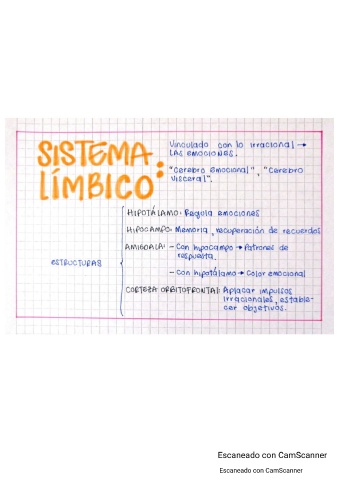 SISTEMA
LÍMBICO:
Vinculado con lo irracional →
LAS EMOCIONES.
"Cerebro Emocional", "Cerebro
Visceral".
ESTRUCTURAS
HIPOTÁLAMO: Regula emociones
HIPOCAMPO: Memoria, recuperación de recuerdos
AMIGDALA: - Con hipocampo → Patrones de
respuesta.
- Con hipotálamo → Color emocional
CORTEZA ORBITOFRONTAL: Aplacar impulsos
irracionales, estable-
cer objetivos.
Escaneado con CamScanner
Escaneado con CamScanner